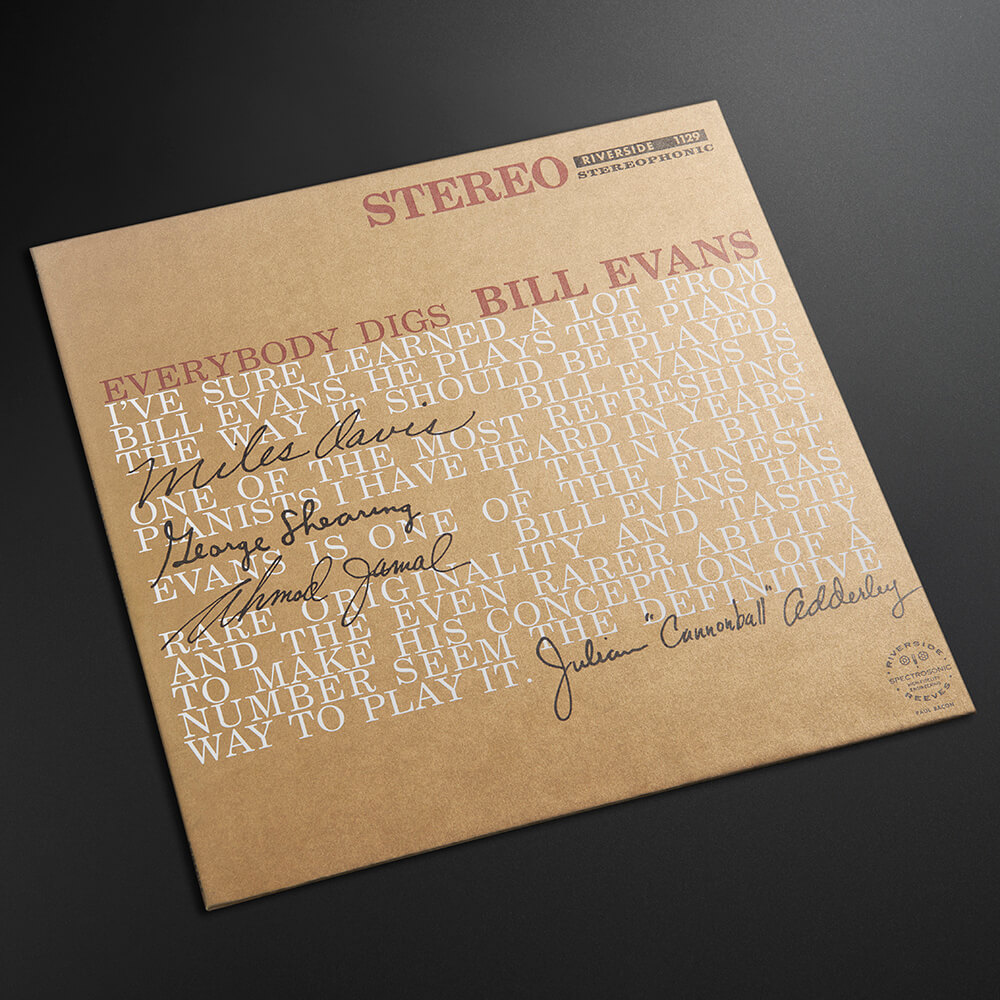 STEREO
RIVERSIDE 1129
STEREOPHONIC
EVERYBODY DIGS BILL EVANS
I'VE SURE LEARNED A LOT FROM
BILL EVANS. HE PLAYS THE PIANO
THE WAY IT SHOULD BE PLAYED.
Miles Davis BILL EVANS IS
ONE OF THE MOST REFRESHING
PIANISTS I HAVE HEARD IN YEARS.
George Shearing I THINK BILL
EVANS IS ONE OF THE FINEST.
Ahmad Jamal BILL EVANS HAS
RARE ORIGINALITY AND TASTE
AND THE EVEN RARER ABILITY
TO MAKE HIS CONCEPTION OF A
NUMBER SEEM THE DEFINITIVE
WAY TO PLAY IT. Julian "Cannonball" Adderley
RIVERSIDE
SPECTROSONIC
HIGH FIDELITY
ENGINEERING
REEVES
PAUL BACON